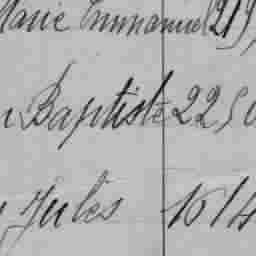 Marie Emmanuel 219
n Baptiste 22 50
Jules 1614